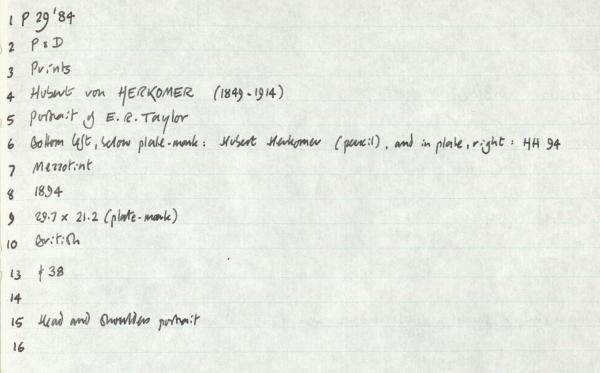 1 P 29'84
2 P & D
3 Prints
4 Hubert von HERKOMER (1849-1914)
5 Portrait of E. R. Taylor
6 Bottom left, below plate-mark: Hubert Herkomer (pencil), and in plate, right: HH 94
7 Mezzotint
8 1894
9 29.7 x 21.2 (plate-mark)
10 British
13 38
14
15 Head and shoulders portrait
16